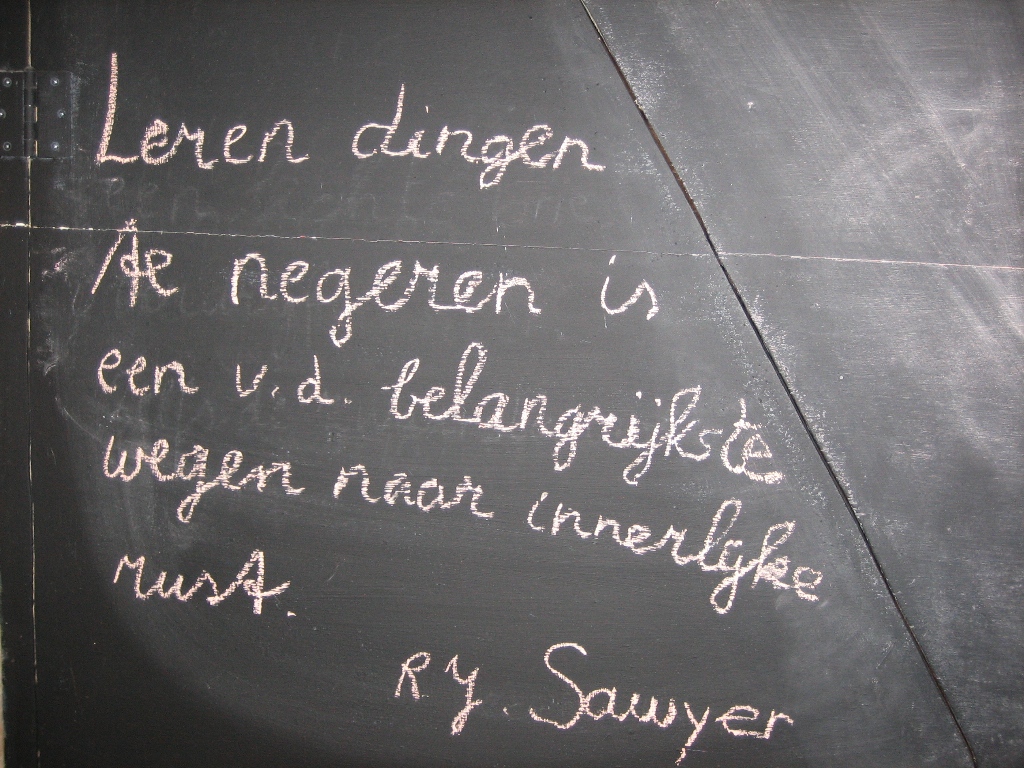 Leren dingen
te negeren is
een v.d. belangrijkste
wegen naar innerlijke
rust.
R y. Sawyer